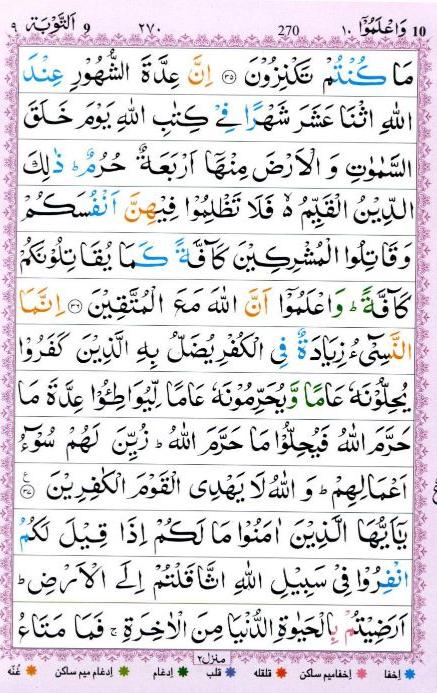 10 وَاعْلَمُوْٓا ١٠ 270 ٢٧٠ 9 اَلتَّوْبَة ٩
مَا كُنْتُمْ تَكْنِزُوْنَ ﴿٣٥﴾ اِنَّ عِدَّةَ الشُّهُوْرِ عِنْدَ
اللّٰهِ اثْنَا عَشَرَ شَهْرًا فِيْ كِتٰبِ اللّٰهِ يَوْمَ خَلَقَ
السَّمٰوٰتِ وَ الْاَرْضَ مِنْهَاۤ اَرْبَعَةٌ حُرُمٌ ؕ ذٰلِكَ
الدِّيْنُ الْقَيِّمُ ۙ۬ فَلَا تَظْلِمُوْا فِيْهِنَّ اَنْفُسَكُمْ
وَقَاتِلُوا الْمُشْرِكِيْنَ كَآفَّةً كَمَا يُقَاتِلُوْنَكُمْ
كَآفَّةً ؕ وَاعْلَمُوْۤا اَنَّ اللّٰهَ مَعَ الْمُتَّقِيْنَ ﴿٣٦﴾ اِنَّمَا
النَّسِيْٓءُ زِيَادَةٌ فِي الْكُفْرِ يُضَلُّ بِهِ الَّذِيْنَ كَفَرُوْا
يُحِلُّوْنَهٗ عَامًا وَّيُحَرِّمُوْنَهٗ عَامًا لِّيُوَاطِـُٔوْا عِدَّةَ مَا
حَرَّمَ اللّٰهُ فَيُحِلُّوْا مَا حَرَّمَ اللّٰهُ ؕ زُيِّنَ لَهُمْ سُوْٓءُ
اَعْمَالِهِمْ ؕ وَ اللّٰهُ لَا يَهْدِي الْقَوْمَ الْكٰفِرِيْنَ ﴿٣٧﴾ ع
يٰۤاَيُّهَا الَّذِيْنَ اٰمَنُوْا مَا لَكُمْ اِذَا قِيْلَ لَكُمُ
انْفِرُوْا فِيْ سَبِيْلِ اللّٰهِ اثَّاقَلْتُمْ اِلَى الْاَرْضِ ؕ
اَرَضِيْتُمْ بِالْحَيٰوةِ الدُّنْيَا مِنَ الْاٰخِرَةِ ۚ فَمَا مَتَاعُ
منزل٢
اخفا اخفامیم ساکن قلقله قلب ادغام ادغام میم ساکن غُنّه